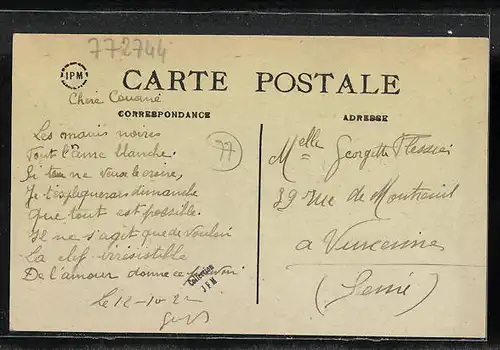 772744
IPM
CARTE POSTALE
Chère Cousine
CORRESPONDANCE
ADRESSE
Les mains noires
Tout l'âme blanche.
Si tu ne veux le croire,
Je t'expliquerai dimanche
Que tout est possible.
Il ne s'agit que de vouloir
La clef irrésistible
De l'amour donne ce pouvoir
Le 12-10-22
77
Collection
J F M
Melle Georgette
39 rue de Montreuil
a Vincennes
(Seine)